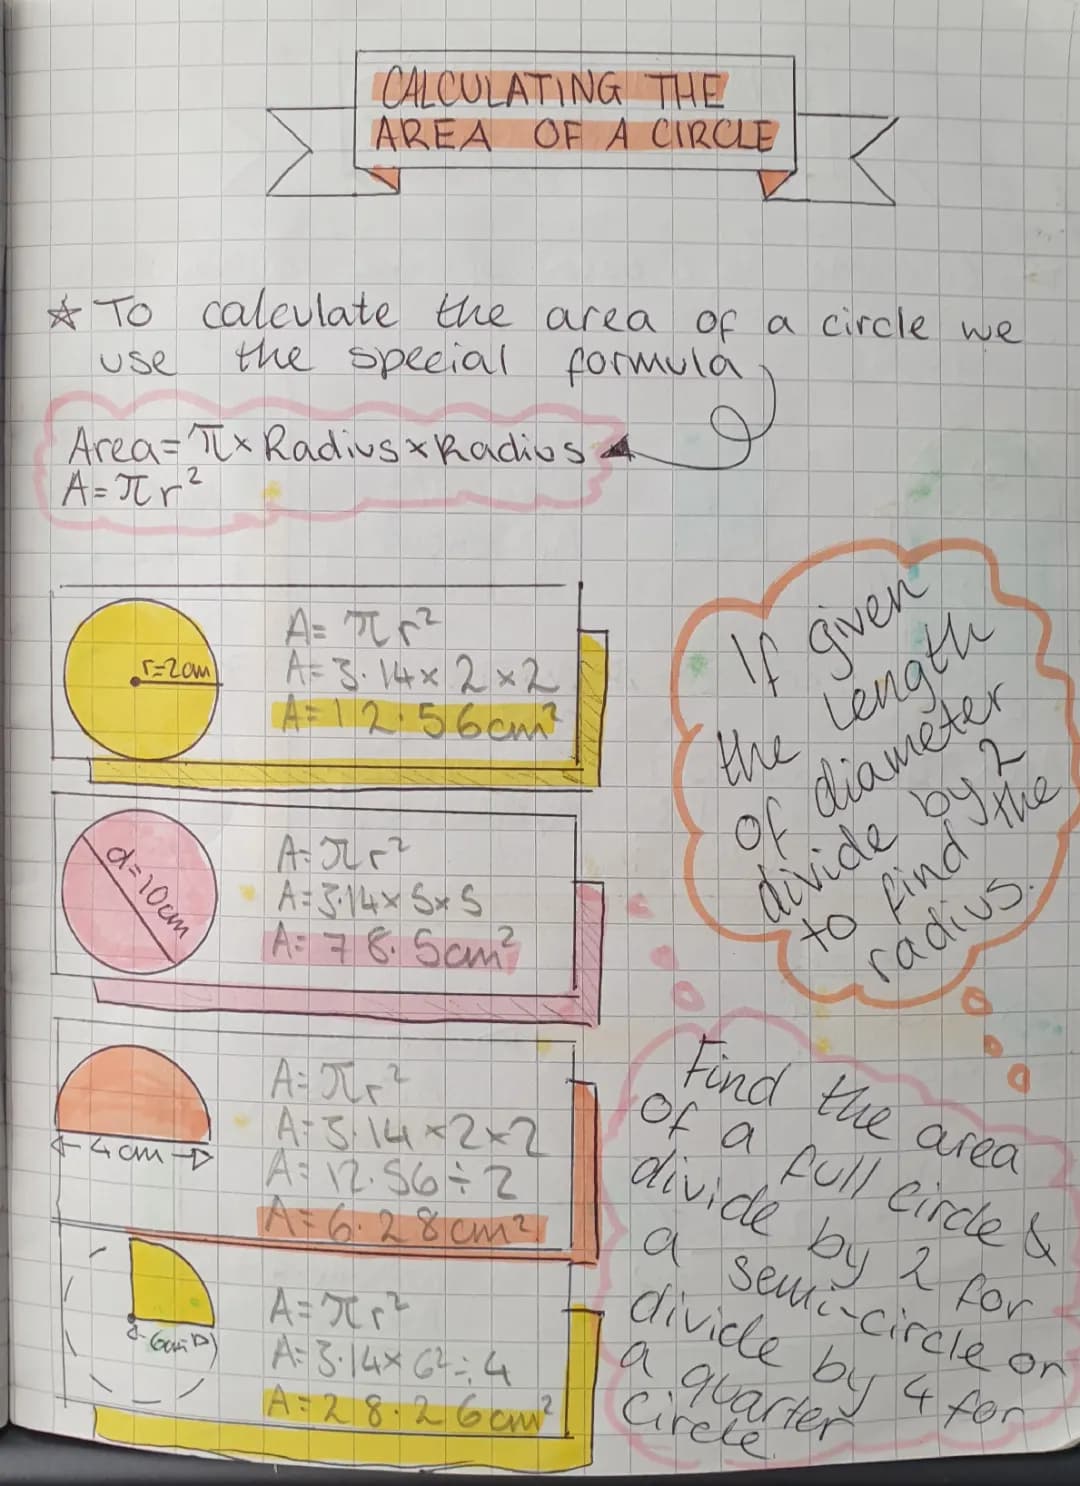 CALCULATING THE
AREA OF A CIRCLE
☆ To calculate the area of a circle we
use the special formula
Area = π × Radius × Radius
A = πr²
r=2cm
A = πr²
A = 3.14 × 2 × 2
A = 12.56cm²
If given
the length
of diameter
divide by 2
to find the
radius.
d=10cm
A = πr²
A = 3.14 × 5 × 5
A = 78.5cm²
4cm
A = πr²
A = 3.14 × 2 × 2
A = 12.56 ÷ 2
A = 6.28cm²
6cm
A = πr²
A = 3.14 × 6² ÷ 4
A = 28.26cm²
Find the area
of a full circle &
divide by 2 for
a semi-circle or
divide by 4 for
a quarter
circle.